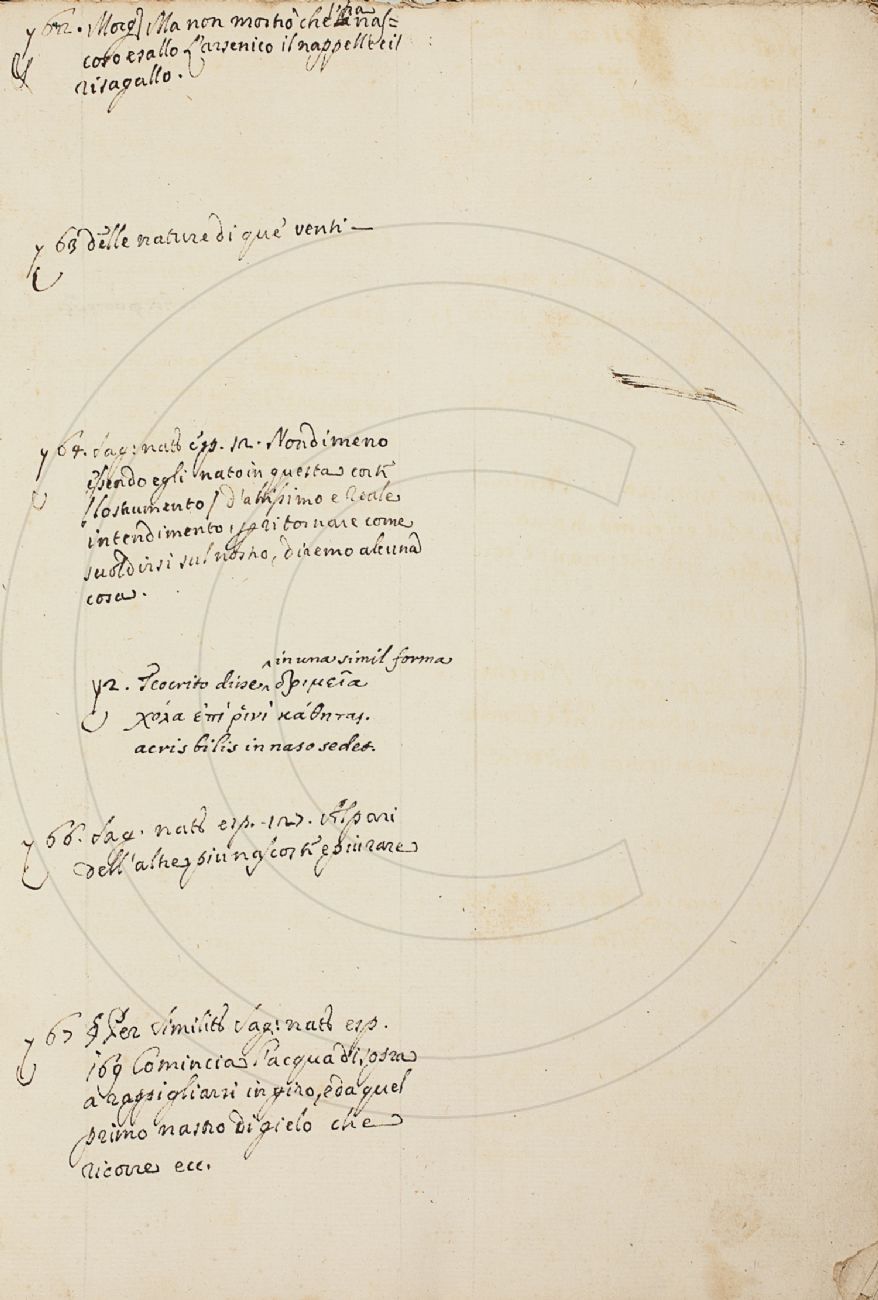 62. Morg. Ma non mostrò che l'ha nas=
coso e sallo l'arsenico il nappello e il
risagallo.
63 delle nature di que' venti —
64. Sag: natli esp. 12. Nondimeno
essendo egli nato in questa corte
(lo strumento) d'altissimo e reale
intendimento, per ritornare come
suol dirsi sul nostro, diremo alcuna
cosa.
in una simil forma
2. Teocrito disse ^ δριμεῖα
χολὰ ἐπὶ ῥινὶ κάθηται.
acris bilis in naso sedet.
66. Sag. natli esp. 127. Al pari
dell'altre più nascoste e più rare
67 § Per similitudine Sag: natli esp.
169 Comincia l'acqua di sopra
a rappigliarsi in giro, e da quel
primo nastro di gielo che
ricorre ecc.